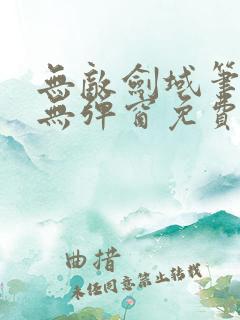 無敵劍域筆
無彈窗免費
曲措
未经同意禁止转载